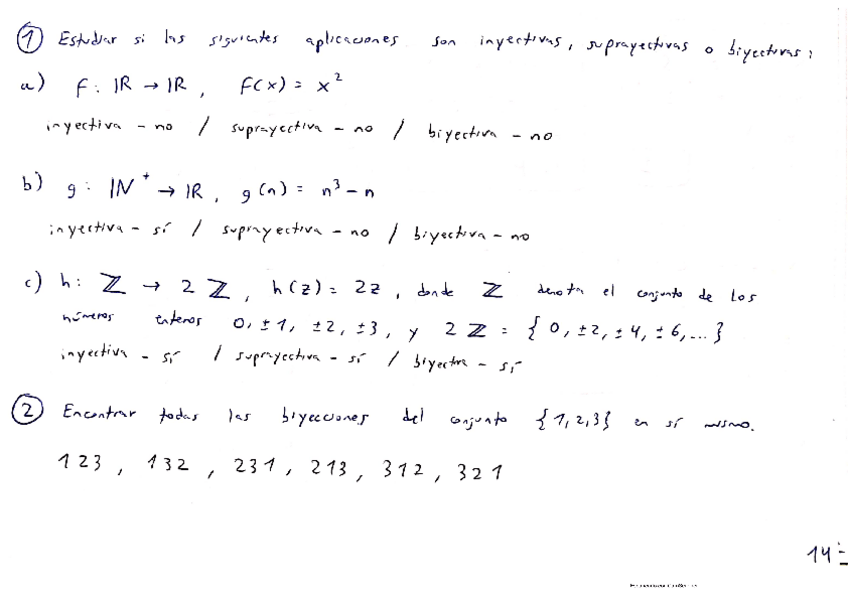 ① Estudiar si las siguientes aplicaciones son inyectivas, suprayectivas o biyectivas:
a) f: ℝ → ℝ, f(x) = x²
inyectiva - no / suprayectiva - no / biyectiva - no
b) g: ℕ⁺ → ℝ, g(n) = n³ - n
inyectiva - sí / suprayectiva - no / biyectiva - no
c) h: ℤ → 2ℤ, h(z) = 2z, donde ℤ denota el conjunto de los
números enteros 0, ±1, ±2, ±3, y 2ℤ = {0, ±2, ±4, ±6, ...}
inyectiva - sí / suprayectiva - sí / biyectiva - sí
② Encontrar todas las biyecciones del conjunto {1,2,3} en sí mismo.
123, 132, 231, 213, 312, 321
14